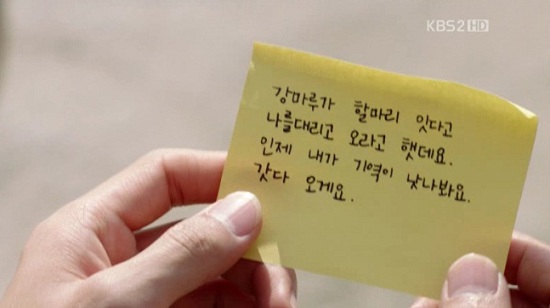 KBS2 HD
강마루가 할마리 잇다고
나를대리고 오라고 햇데요.
인제 내가 기역이 낫나봐요.
갓다 오게요.